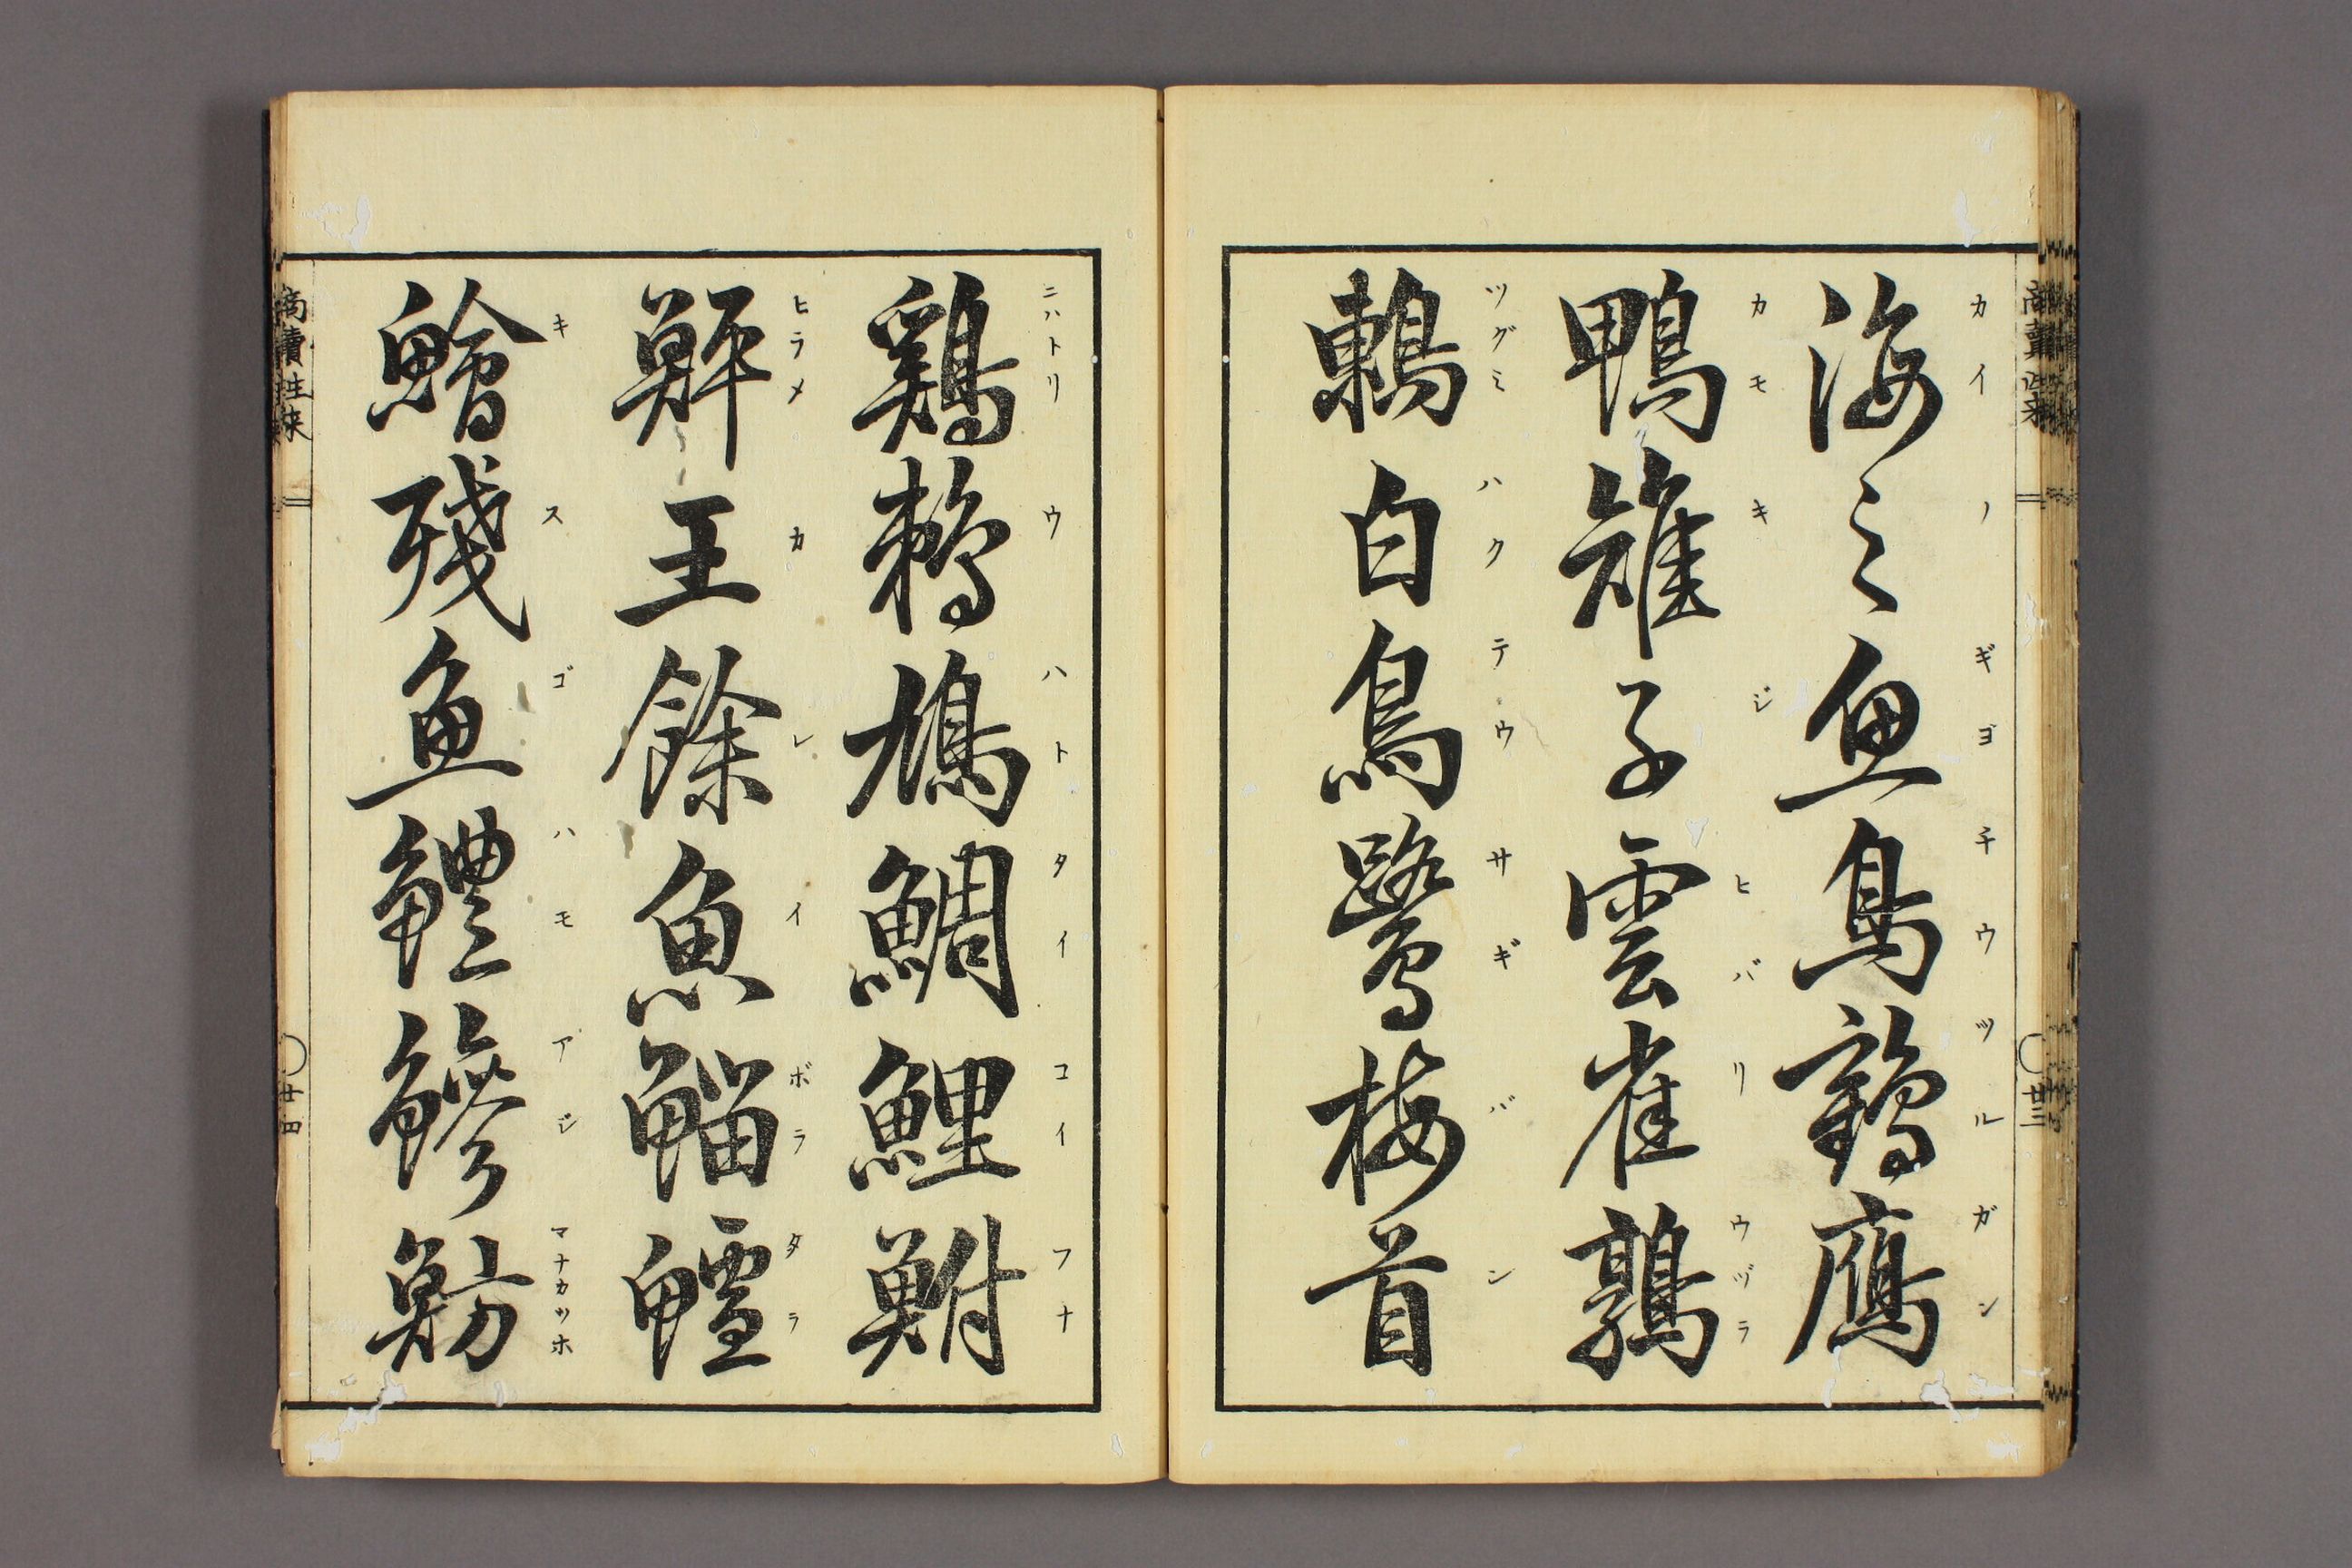 商賣往来 廿三
カイノギヨチウツルガン
海之魚鳥鶴鴈
カモキジヒバリウヅラ
鴨雉子雲雀鶉
ツグミハクテウサギバン
鶇白鳥鷺梅首
ニハトリウハトタイコイフナ
鷄鵜鳩鯛鯉鮒
ヒラメカレイボラタラ
鮃王餘魚鯔鱈
キスゴハモアジマナカツホ
鱠残魚鱧鰺魴
商賣往来 廿四